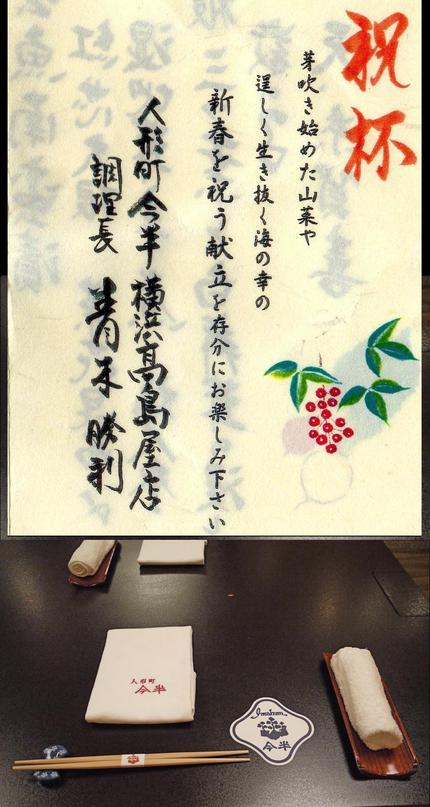 祝杯
芽吹き始めた山菜や
逞しく生き抜く海の幸の
新春を祝う献立を存分にお楽しみ下さい
人形町今半 横浜高島屋店
調理長 青木勝利
人形町
今半
Imahan
今半